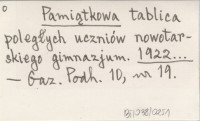 Pamiątkowa tablica
poległych uczniów nowotar-
skiego gimnazjum. 1922...
— Gaz. Podh. 10, nr 19.